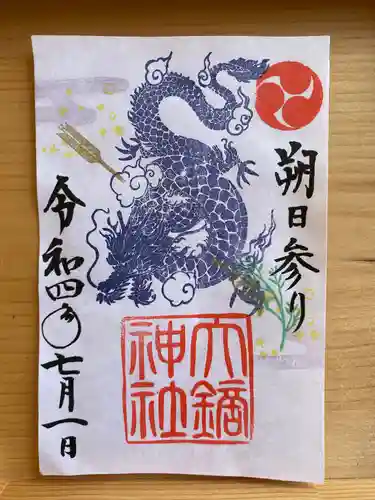 朔日参り
六鏑神社
令和四年七月一日